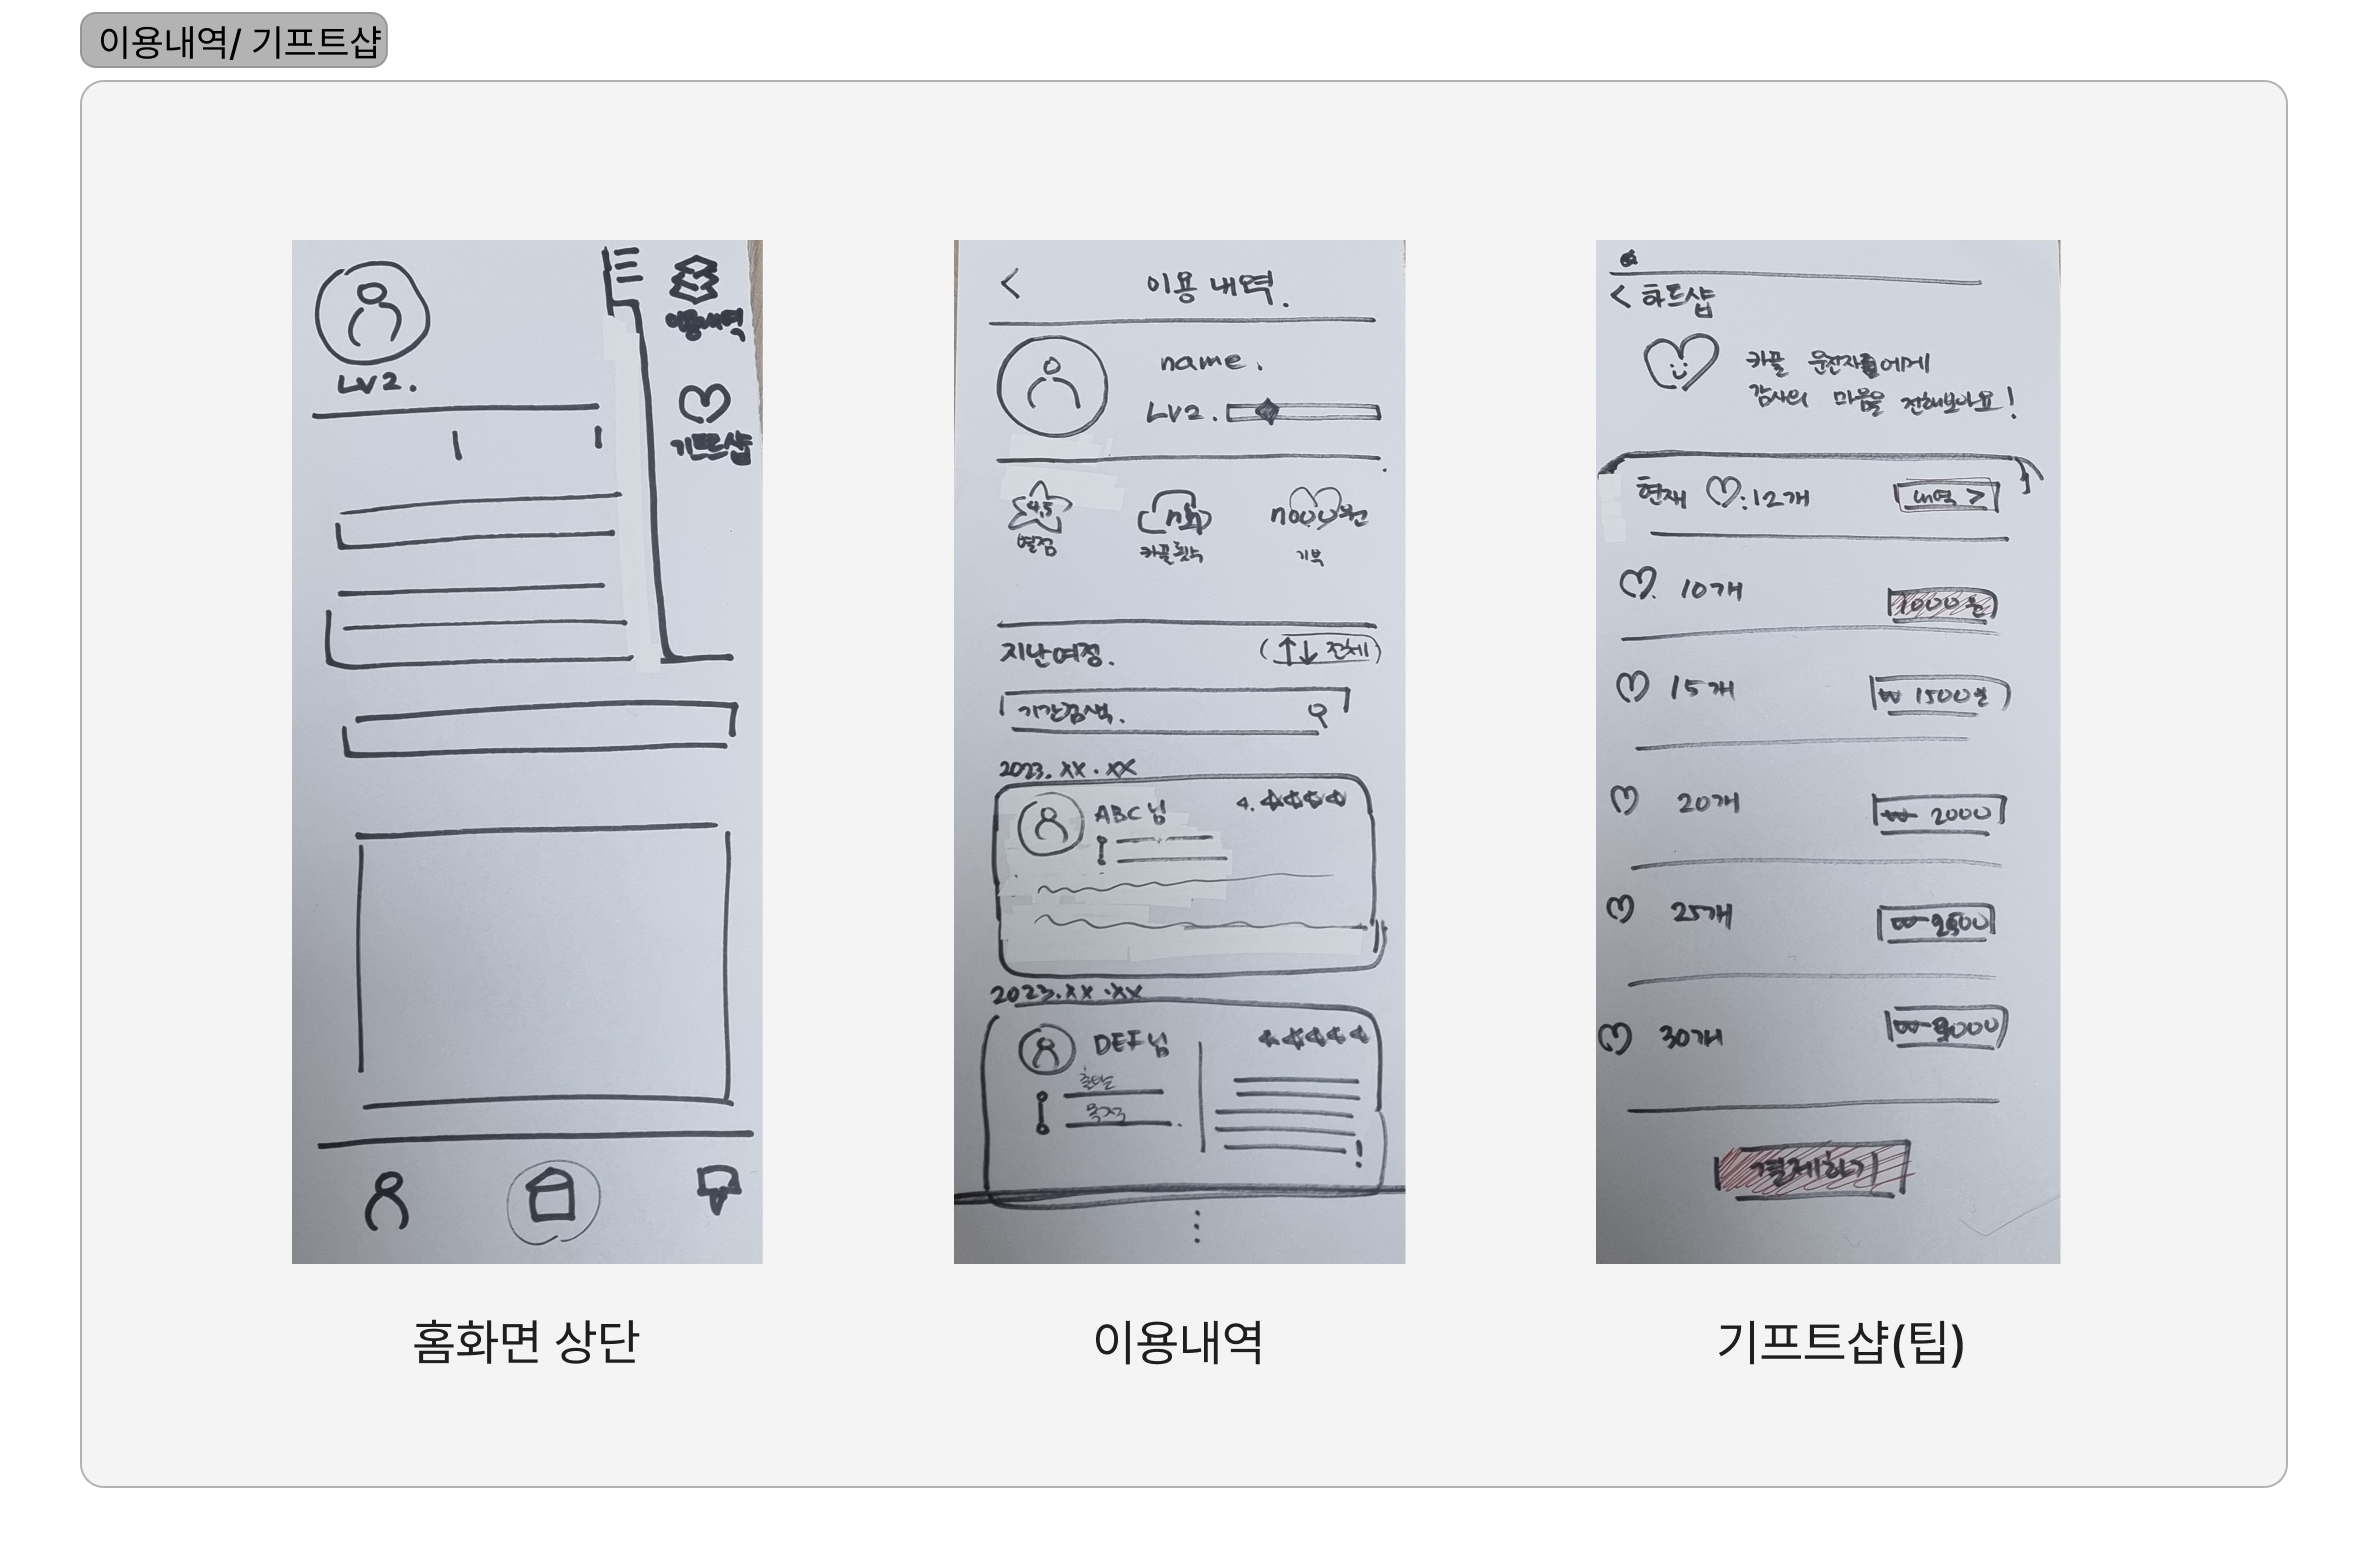 이용내역/ 기프트샵
LV2.
이용내역
기프트샵
홈화면 상단
< 이용 내역.
name.
LV2.
4.5
n번
n000원
평점
카풀횟수
기부
지난여정.
↑↓ 전체
기간검색.
2023.XX.XX
ABC님
2023.XX.XX
DEF님
출발
목적
이용내역
< 하트샵
카풀 운전자들에게
감사의 마음을 전해보아요!
현재 ♡:12개
내역 >
♡ 10개
1000원
♡ 15개
₩ 1500원
♡ 20개
₩ 2000
♡ 25개
₩ 2500
♡ 30개
₩ 3000
결제하기
기프트샵(팁)